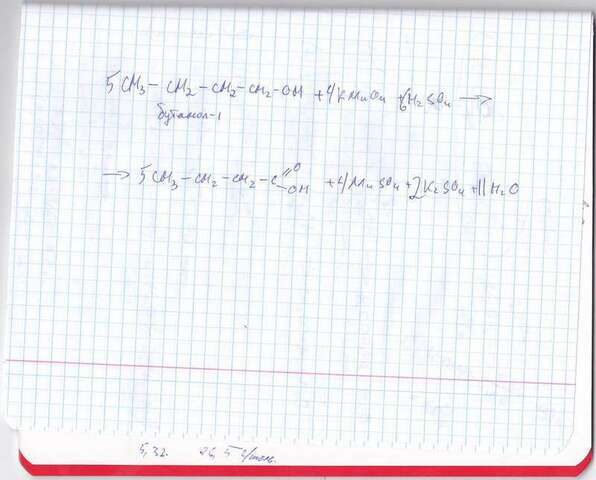 5CH₃-CH₂-CH₂-CH₂-OH + 4KMnO₄ + 6H₂SO₄ →
бутанол-1
→ 5CH₃-CH₂-CH₂-C(=O)-OH + 4MnSO₄ + 2K₂SO₄ + 11H₂O
5,32. 26,5 г/моль.